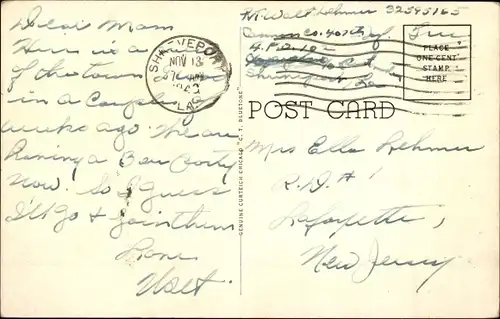 Dear Mom
Here is a
of the town I was
in a couple of
weeks ago. We are
having a Beer Party
now. So I guess
I'll go & join them
Love
Walt
SHREVEPORT
NOV 13
LA.
Walt Lehmer 32595165
Cannon Co. 40
A.P.O.
Shreveport, La
Free
PLACE
ONE CENT
STAMP
HERE
POST CARD
GENUINE CURTEICH-CHICAGO "C. T. DULSTONE"
Mrs Ella Lehmer
R.D. #1
Lafayette,
New Jersey